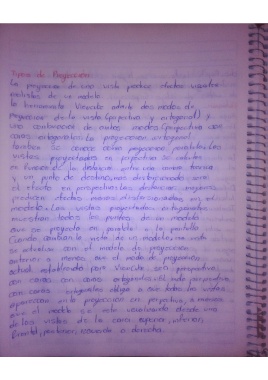 Tipos de Proyección
La proyección de una vista produce efectos visuales
realistas de un modelo
la herramienta Viewcube admite dos modos de
proyección de la vista (perspectiva y ortogonal) y
una combinación de ambos modos (perspectiva con
caras ortogonales) la proyección ortogonal
también se conoce como proyección paralela las
vistas proyectadas en perspectiva se calculan
en función de la distancia entre una cámara teórica
y un punto de destino,
el efecto en perspectiva las distancias mayores
producen efectos menos distorsionados en el
modelo. las vistas proyectadas ortogonales
muestran todos los puntos de un modelo
que se proyecta en paralelo a la pantalla
Cuando cambia la vista de un modelo, la vista
se actualiza con el modelo de proyección
anterior a menos que el modo de proyección
actual establecido para Viewcube sea perspectiva
con caras ortogonales el modo perspectiva
con caras ortogonales obliga a que todas las vistas
aparezcan en la proyección en perspectiva, a menos
que el modelo se esté visualizando desde una
de las vistas de la cara superior, inferior,
frontal, posterior, izquierda o derecha.